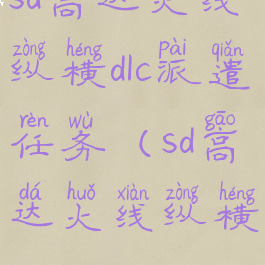 sd高达火线
zòng héng pài qiǎn
纵横dlc派遣
rèn wù gāo
任务（sd高
dá huǒ xiàn zòng héng
达火线纵横